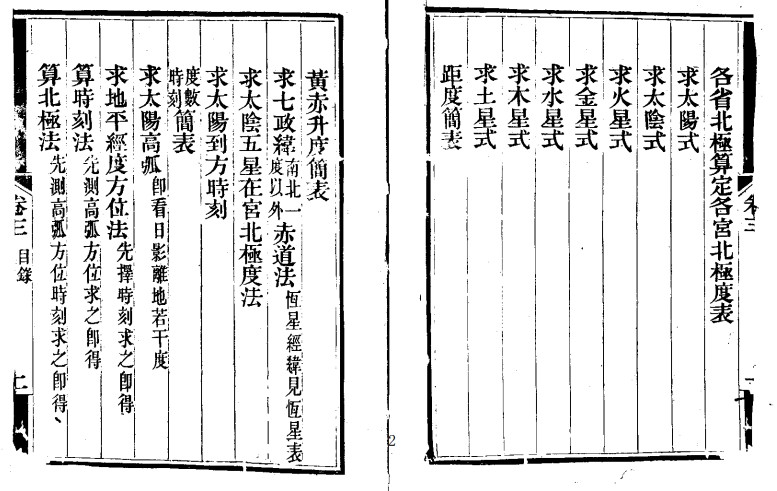 各省北極算定各宮北極度表
求太陽式
求太陰式
求火星式
求金星式
求水星式
求木星式
求土星式
距度簡表
卷三
黃赤升度簡表
求七政緯南北一度以外赤道法恆星經緯見恆星表
求太陰五星在宮北極度法
求太陽到方時刻
度數時刻簡表
求太陽高弧卽看日影離地若干度
求地平經度方位法先擇時刻求之卽得
算時刻法先測高弧方位求之卽得
算北極法先測高弧方位時刻求之卽得、
卷三
目錄
上
2